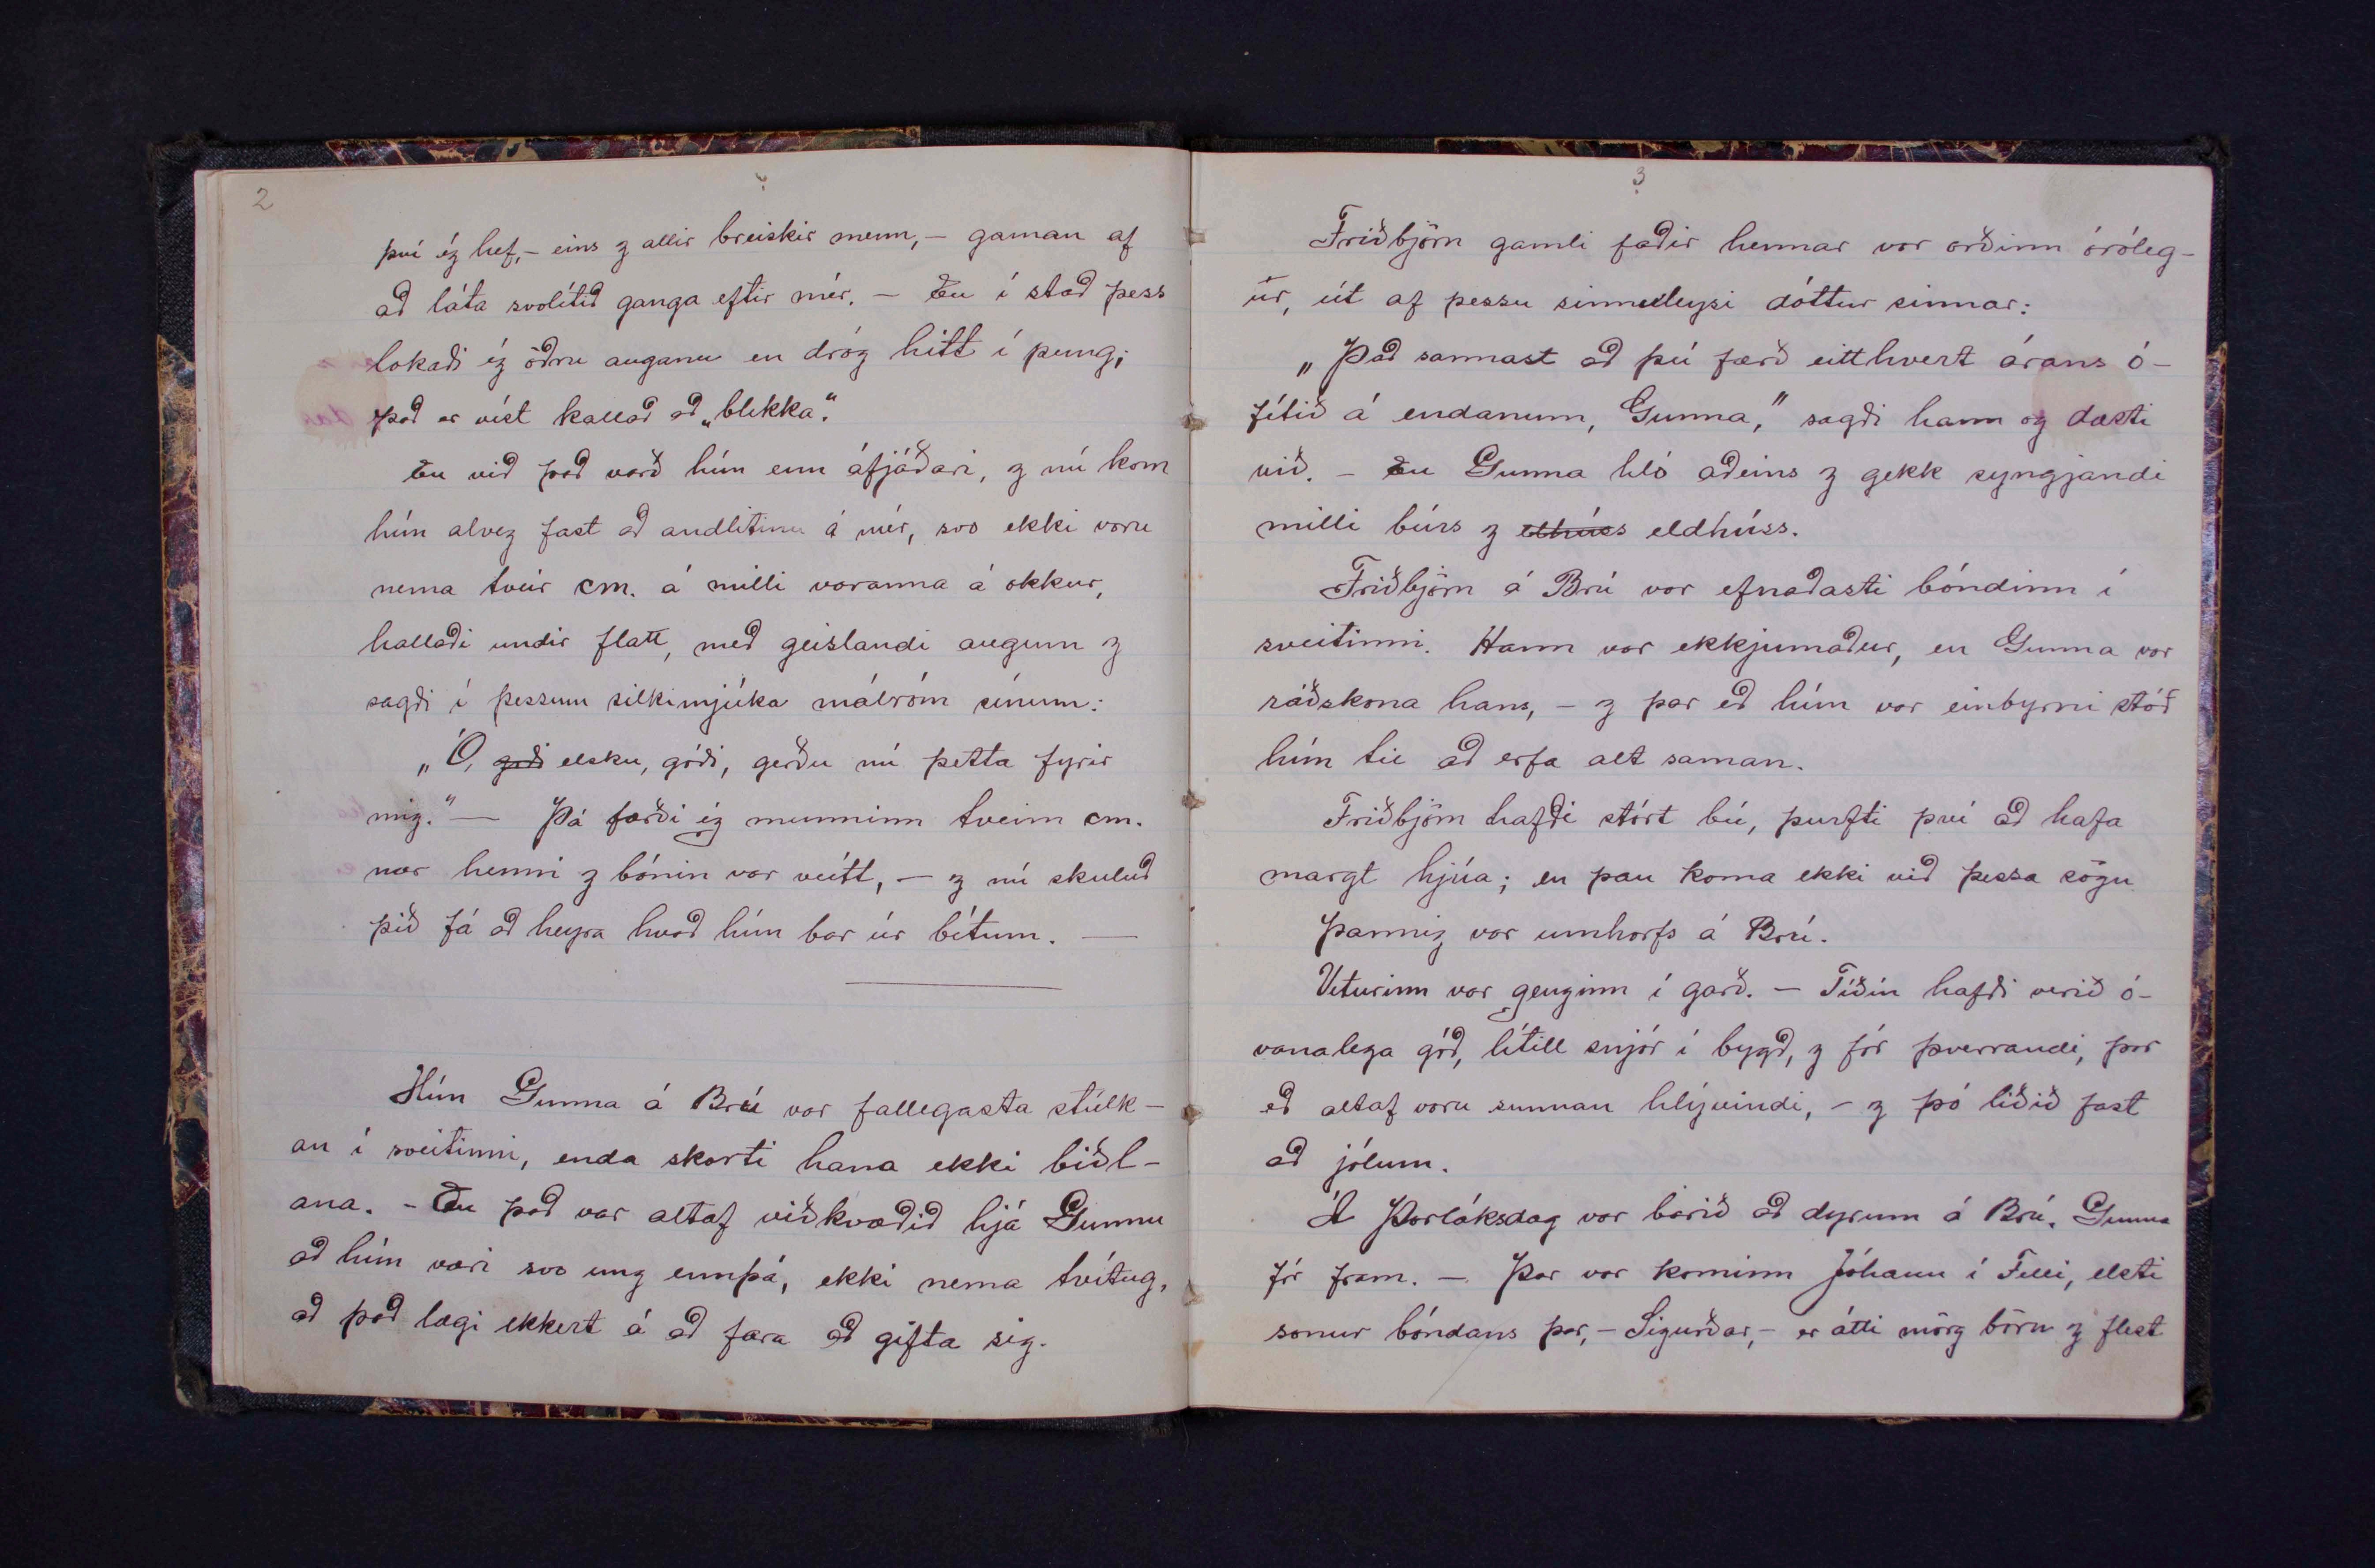 2
því ég hef, – eins og allir breiskir menn, – gaman af
að láta svolítið ganga eftir mér. – En í stað þess
lokaði ég öðru auganu en dróg hitt í pung;
það er víst kallað að „blikka“.
En við það varð hún enn áfjáðari, og nú kom
hún alveg fast að andlitinu á mér, svo ekki voru
nema tveir cm. á milli varanna á okkur,
hallaði undir flatt, með geislandi augum og
sagði í þessum silkimjúka málróm sínum:
„Ó, góði elsku, góði, gerðu nú þetta fyrir
mig.“ — Þá færði ég munninn tveim cm.
nær henni og bónin var veitt, – og nú skuluð
þið fá að heyra hvað hún bar úr bítum. —
Hún Gunna á Brú var fallegasta stúlk-
an í sveitinni, enda skorti hana ekki biðl-
ana. - En það var altaf viðkvæðið hjá Gunnu
að hún væri svo ung ennþá, ekki nema tvítug,
að það lægi ekkert á að fara að gifta sig.
3
Friðbjörn gamli faðir hennar var orðinn óróleg-
ur, út af þessu sinnuleysi dóttur sinnar:
„Það sannast að þú færð eitthvert árans ó-
fétið á endanum, Gunna,“ sagði hann og dæsti
við. – En Gunna hló aðeins og gekk syngjandi
milli búrs og elhúss eldhúss.
Friðbjörn á Brú var efnaðasti bóndinn í
sveitinni. Hann var ekkjumaður, en Gunna var
ráðskona hans, – og þar eð hún var einbyrni stóð
hún til að erfa alt saman.
Friðbjörn hafði stórt bú, þurfti því að hafa
margt hjúa; en þau koma ekki við þessa sögu
Þannig var umhorfs á Brú.
Veturinn var genginn í garð. – Tíðin hafði verið ó-
vanalega góð, lítill snjór í bygð, og fór þverrandi, þar
eð altaf voru sunnan hlývindi, – og þó liðið fast
að jólum.
Á Þorláksdag var barið að dyrum á Brú. Gunna
fór fram. – Þar var kominn Jóhann í Felli, elsti
sonur bóndans þar, – Sigurðar, – er átti mörg börn og flest